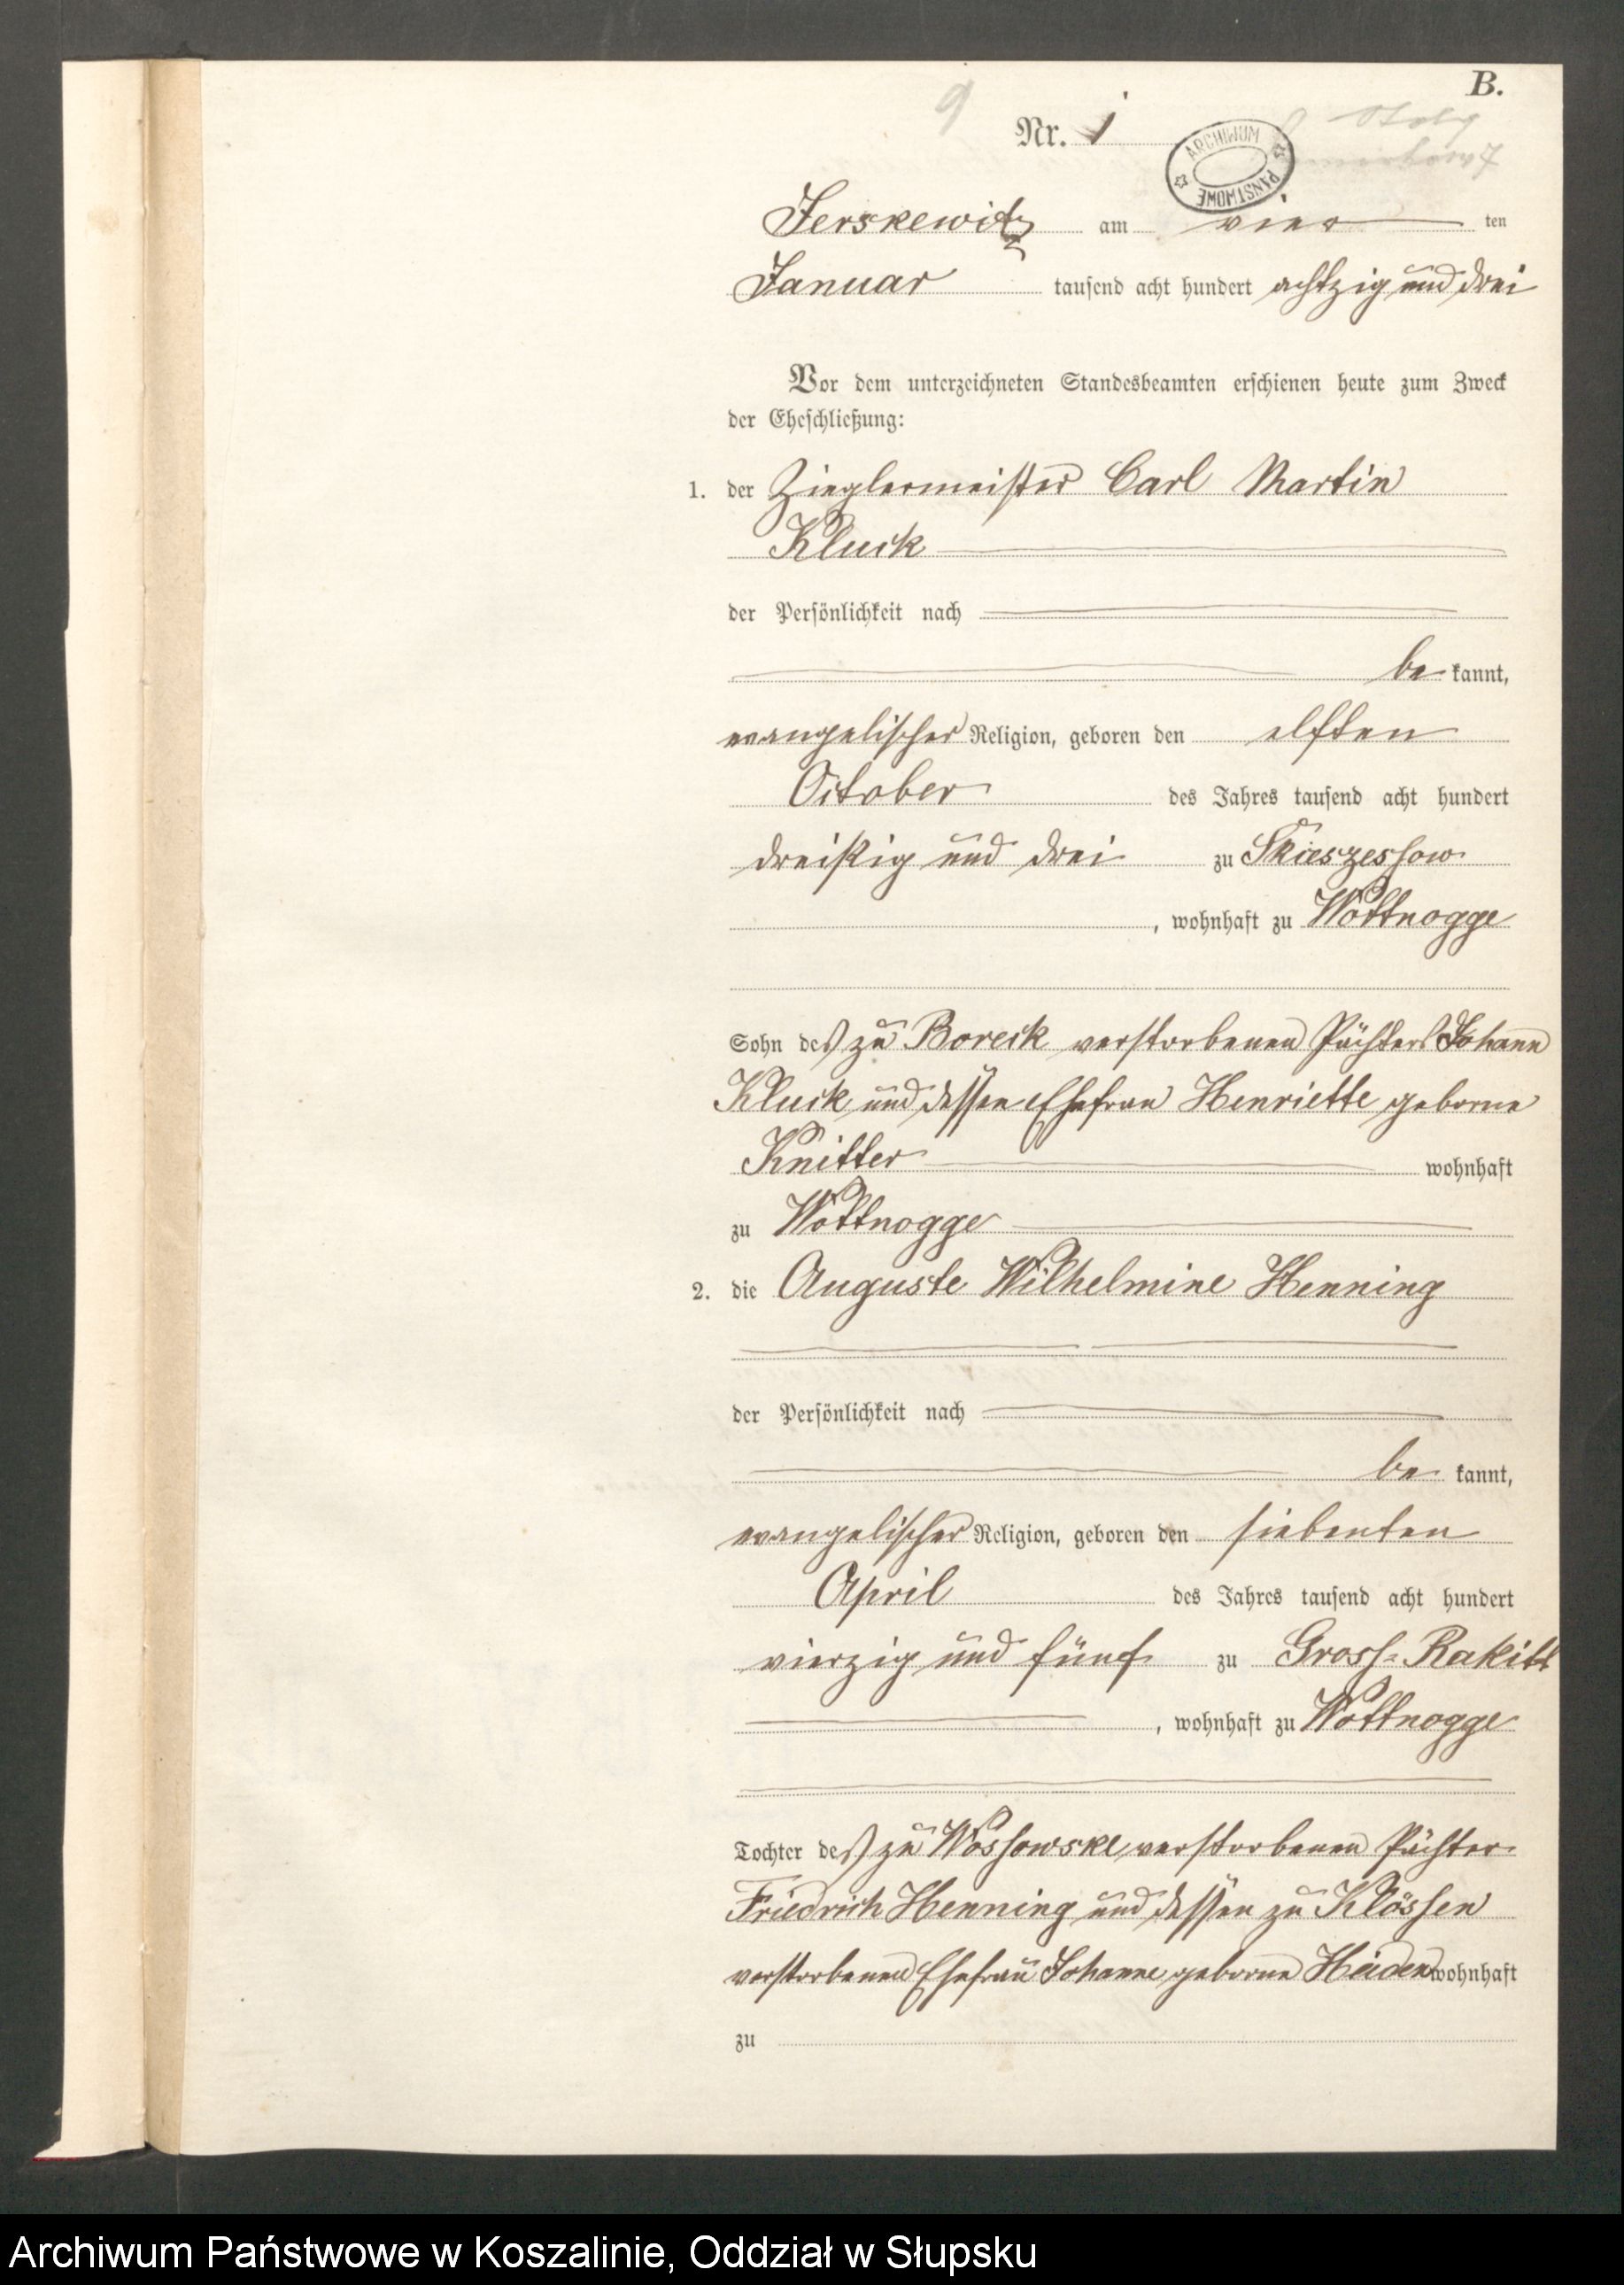 B.
9
Nr. 1
ARCHIWUM PAŃSTWOWE
Stolp
Jerskewitz am vier ten
Januar tausend acht hundert achtzig und drei
Vor dem unterzeichneten Standesbeamten erschienen heute zum Zweck
der Eheschließung:
1. der Zieglermeister Carl Martin
Kluck
der Persönlichkeit nach
be kannt,
evangelischer Religion, geboren den elften
October des Jahres tausend acht hundert
dreißig und drei zu Skieszeshow
, wohnhaft zu Wottnogge
Sohn des zu Boreck verstorbenen Pächters Johann
Kluck und dessen Ehefrau Henriette geborne
Knitter wohnhaft
zu Wottnogge
2. die Auguste Wilhelmine Henning
der Persönlichkeit nach
be kannt,
evangelischer Religion, geboren den siebenten
April des Jahres tausend acht hundert
vierzig und fünf zu Gross-Rakitt
, wohnhaft zu Wottnogge
Tochter des zu Wossowske verstorbenen Pächter
Friedrich Henning und dessen zu Klössen
verstorbenen Ehefrau Johanne geborne Heiden wohnhaft
zu
Archiwum Państwowe w Koszalinie, Oddział w Słupsku